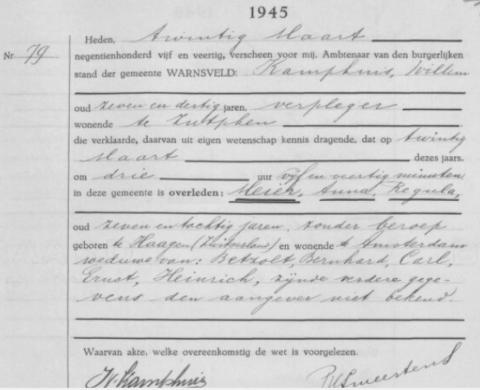 1945
Heden, twintig Maart
Nr 79 negentienhonderd vijf en veertig, verscheen voor mij, Ambtenaar van den burgerlijken
stand der gemeente WARNSVELD: Kamphuis, Willem
oud zeven en dertig jaren, verpleger
wonende te Zutphen
die verklaarde, daarvan uit eigen wetenschap kennis dragende, dat op twintig
Maart dezes jaars.
om drie uur vijf en veertig minuten
in deze gemeente is overleden: Meier, Anna, Regula,
oud zeven en tachtig jaren, zonder beroep
geboren te Haagen (Zwitserland) en wonende te Amsterdam
weduwe van: Betzolt, Bernhard, Carl,
Ernst, Heinrich, zijnde verdere gege-
vens den aangever niet bekend.
Waarvan akte, welke overeenkomstig de wet is voorgelezen.
W. Kamphuis